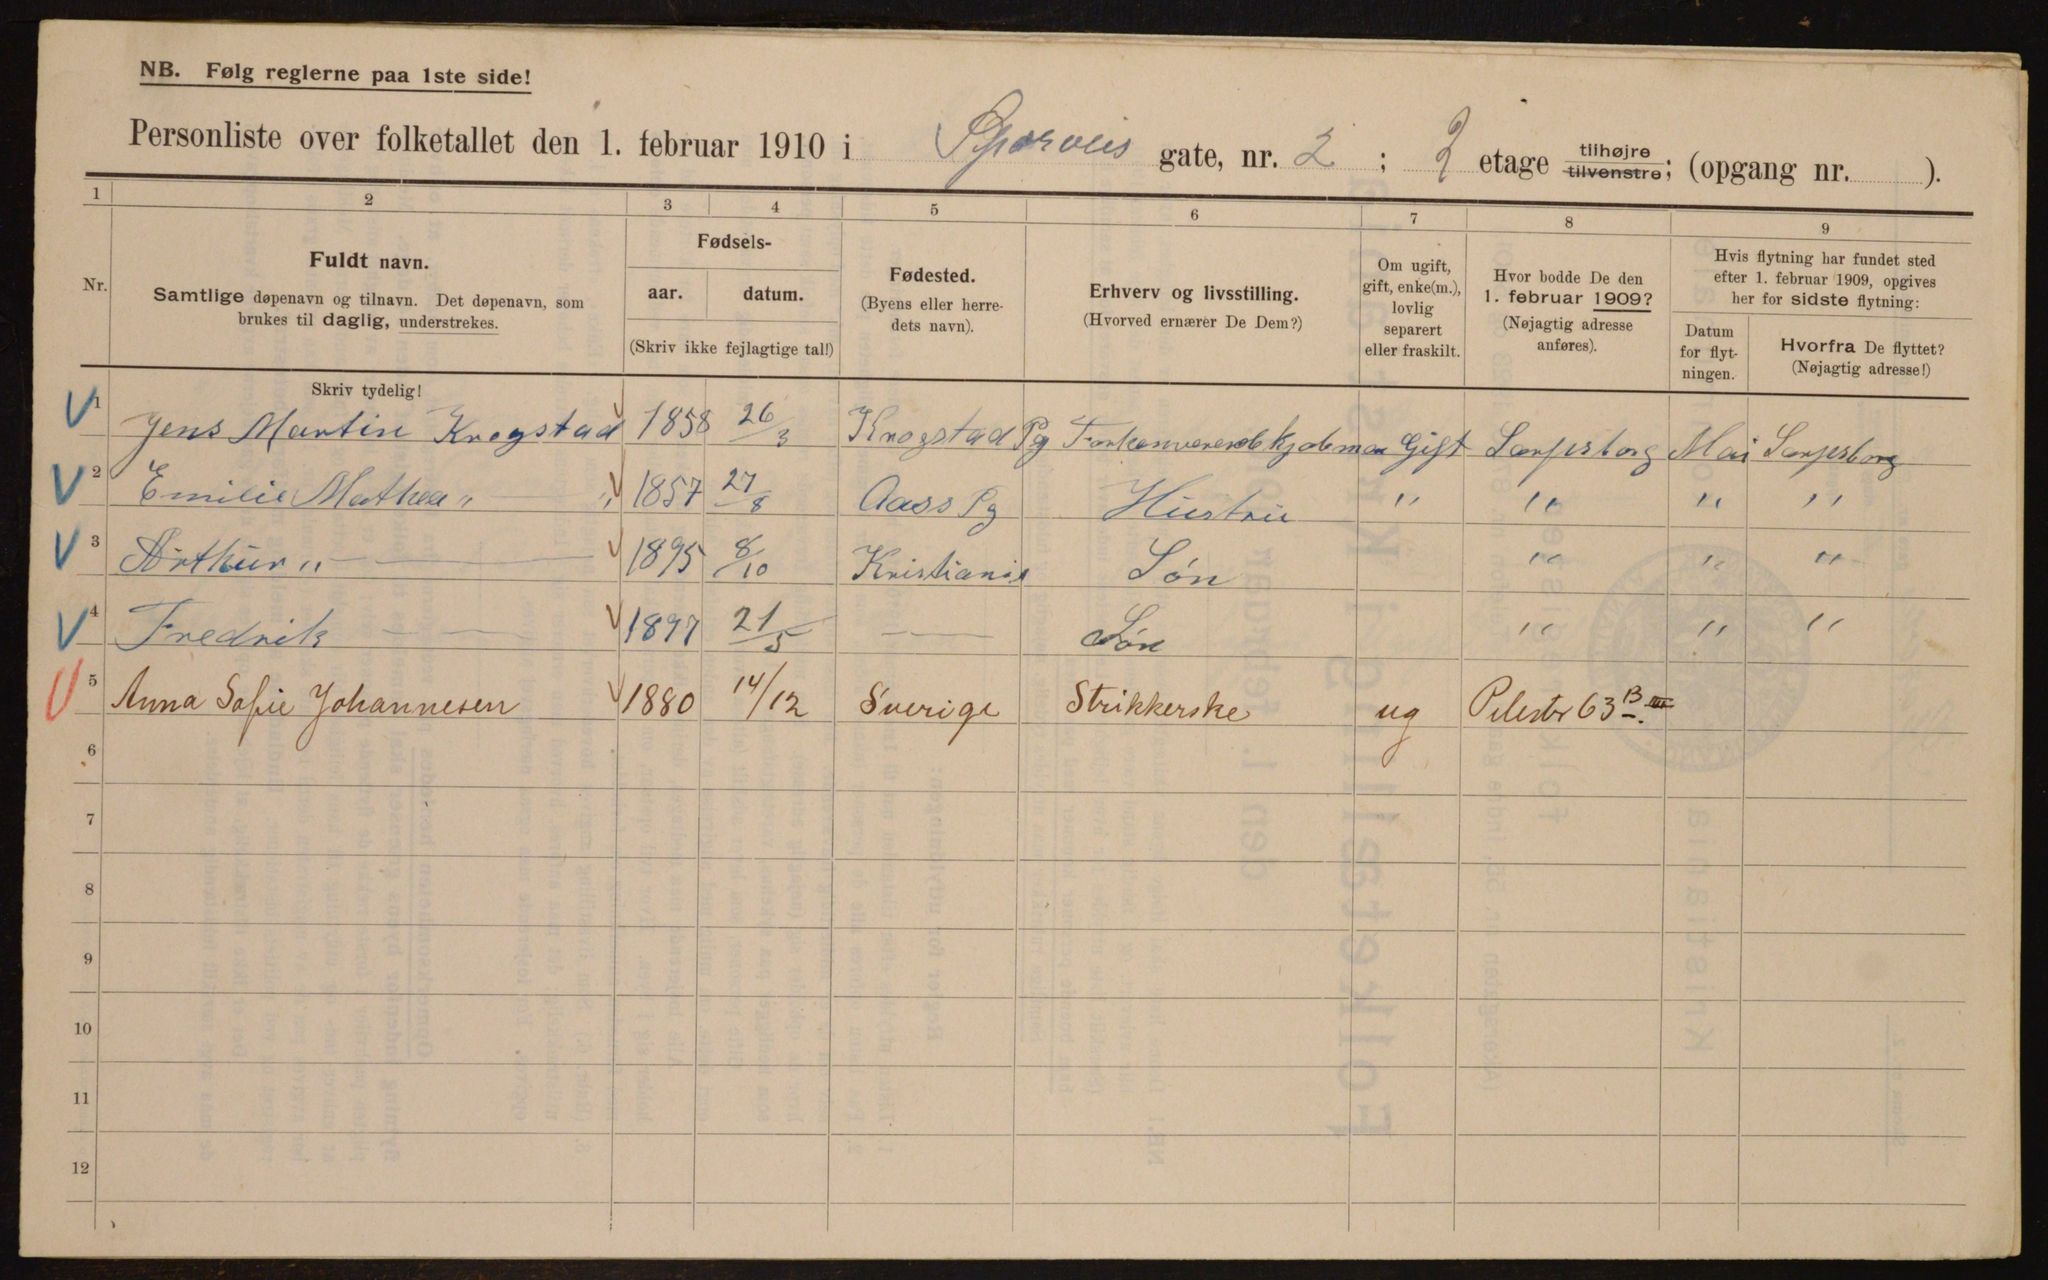 NB. Følg reglerne paa 1ste side!
Personliste over folketallet den 1. februar 1910 i Sporveis gate, nr. 2 ; 2 etage tilhøjre tilvenstre; (opgang nr. ).
1 2 3 4 5 6 7 8 9
Nr.
Fuldt navn.
Samtlige døpenavn og tilnavn. Det døpenavn, som
brukes til daglig, understrekes.
Skriv tydelig!
Fødsels-
aar. datum.
(Skriv ikke fejlagtige tal!)
Fødested.
(Byens eller herre-
dets navn).
Erhverv og livsstilling.
(Hvorved ernærer De Dem?)
Om ugift,
gift, enke(m.),
lovlig
separert
eller fraskilt.
Hvor bodde De den
1. februar 1909?
(Nøjagtig adresse
anføres).
Hvis flytning har fundet sted
efter 1. februar 1909, opgives
her for sidste flytning:
Datum
for flyt-
ningen.
Hvorfra De flyttet?
(Nøjagtig adresse!)
1 Jens Martin Krogstad 1858 26/3 Krogstad Pg Gift Sarpsborg Mai Sarpsborg
2 Emilie Mathea " " 1857 27/8 Aass Pg Hustru " " " "
3 Arthur " — 1895 8/10 Kristiania Søn " " "
4 Fredrik — — 1897 21/5 — — Søn " " "
5 Anna Sofie Johannesen 1880 14/12 Sverige Strikkerske ug Pilestr 63 B III
6
7
8
9
10
11
12